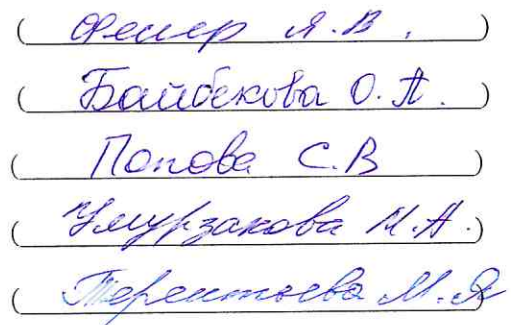 ( Фелер Я.В. )
( Байбекова О.А. )
( Попова С.В )
( Умурзакова И.А. )
( Терентьева М.Я )